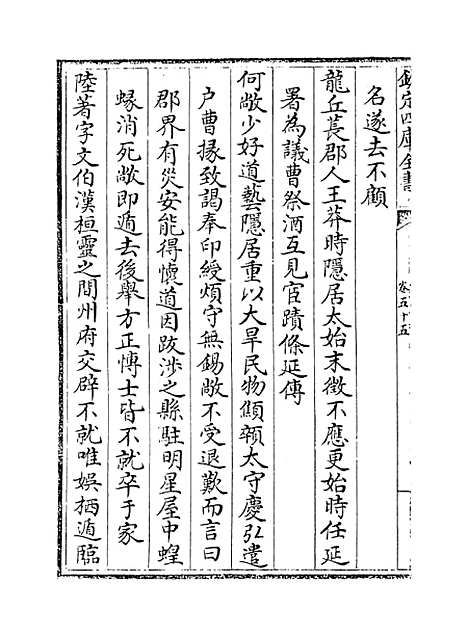 欽定四庫全書
卷五十五
名遂去不顧
龍丘萇郡人王莽時隱居太始末徵不應更始時任延
署為議曹祭酒互見官蹟條延傳
何敞少好道藝隱居重以大旱民物顦顇太守慶弘遣
户曹掾致謁奉印綬煩守無錫敞不受退歎而言曰
郡界有災安能得懷道因跋涉之縣駐明星屋中蝗
蝝消死敞即遁去後舉方正博士皆不就卒于家
陸著字文伯漢桓靈之間州府交辟不就唯娛栖遁臨